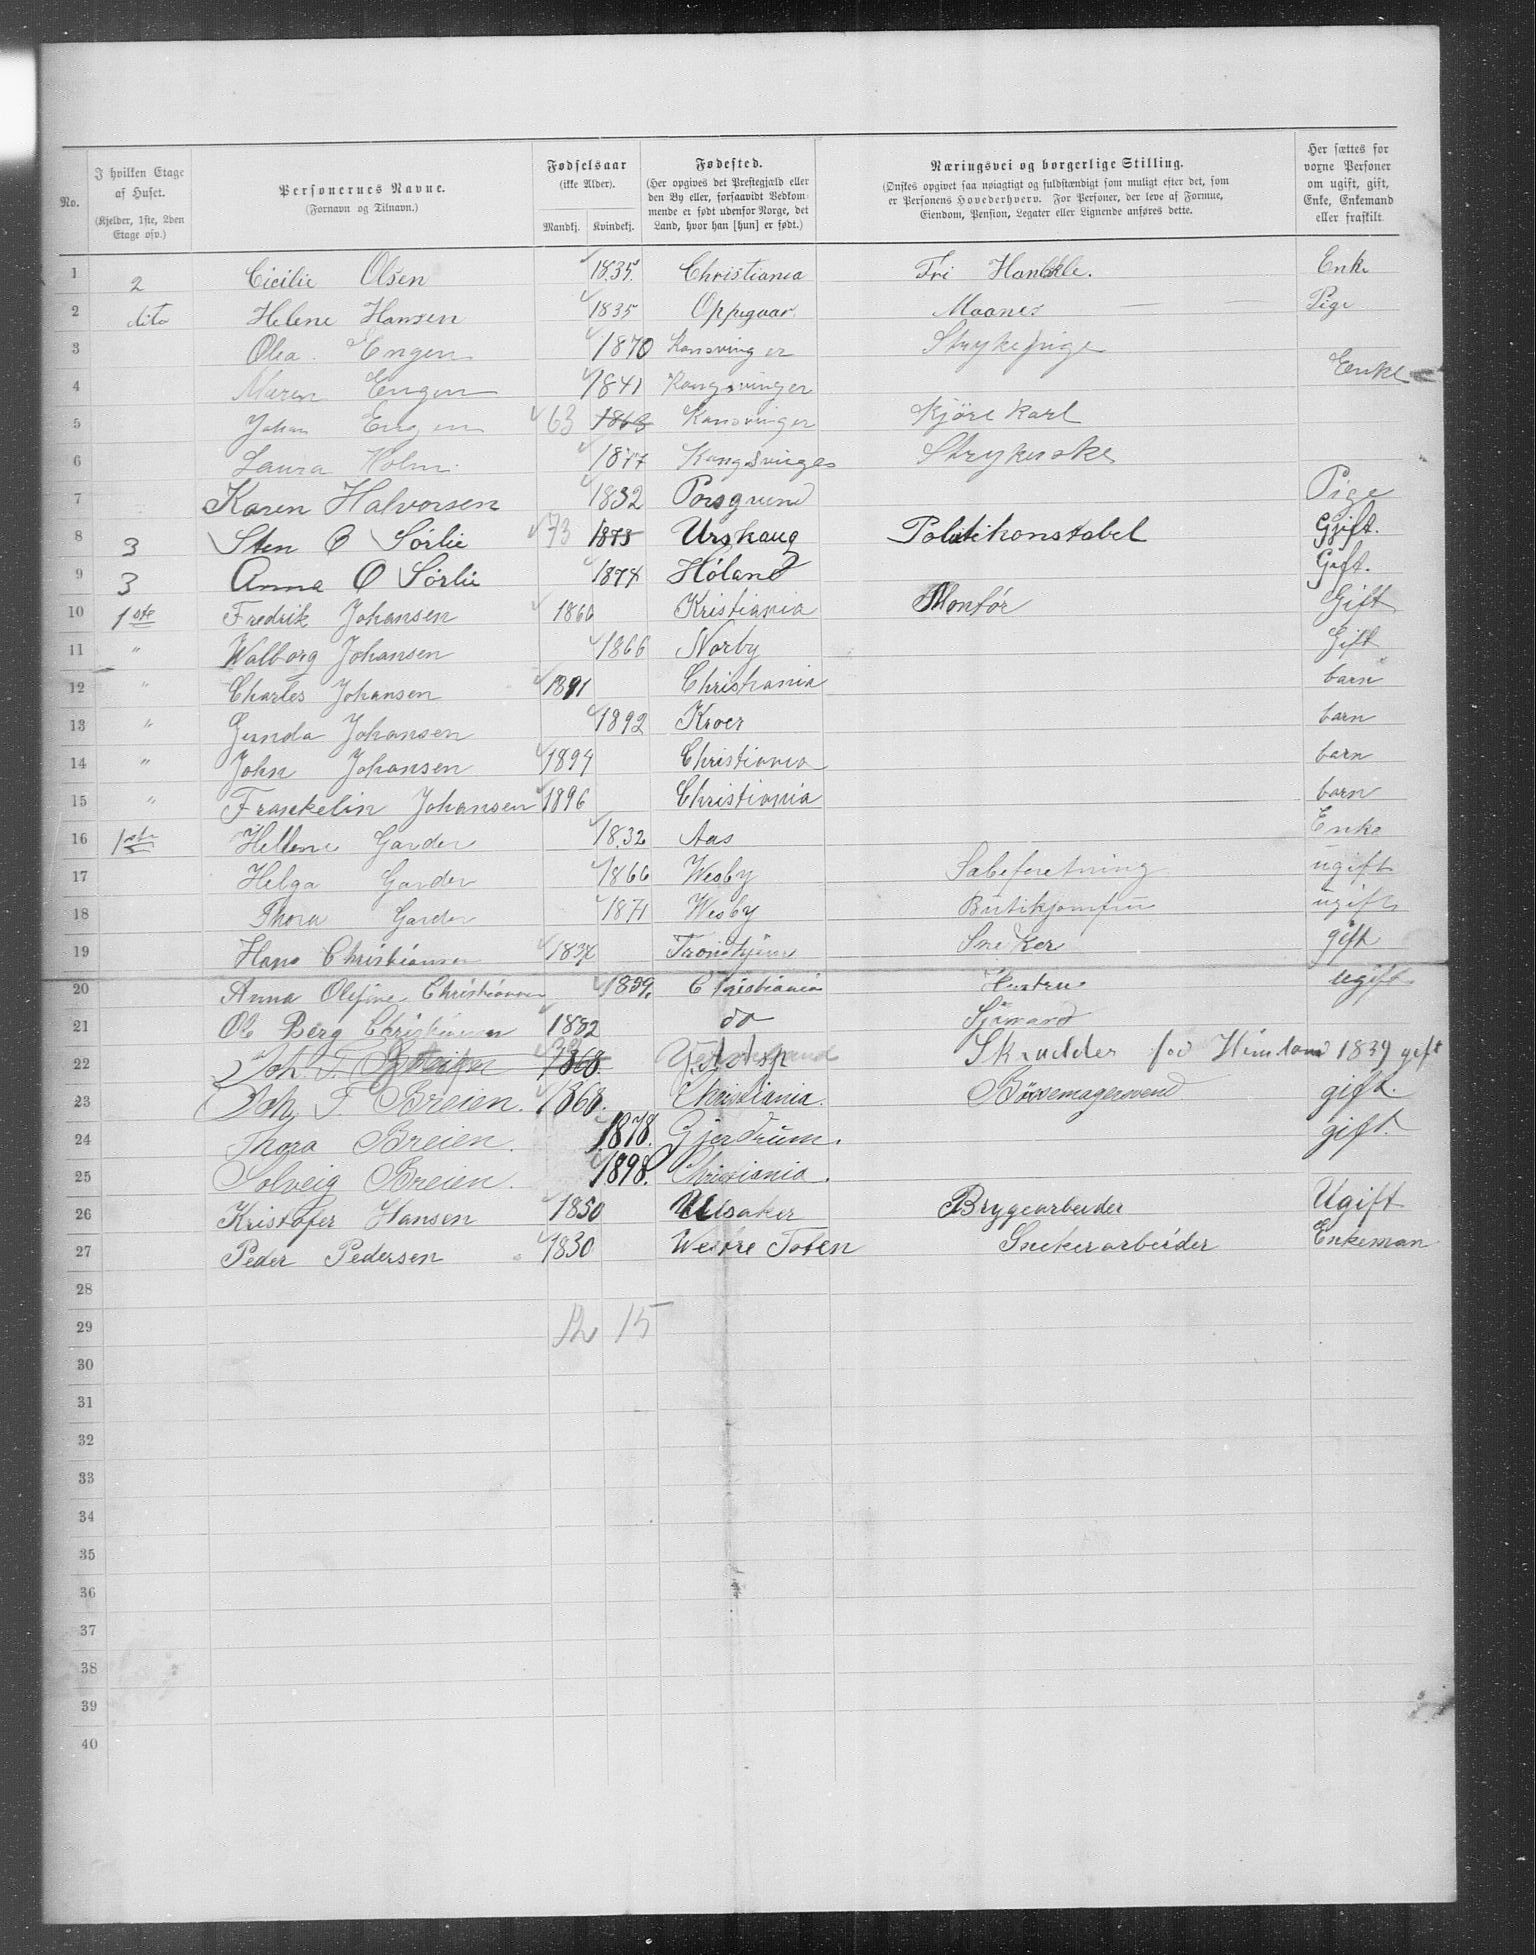 No. I hvilken Etage af Huset. (Kjelder, 1ste, 2den Etage osv.) Personernes Navne. (Fornavn og Tilnavn.) Fødselsaar (ikke Alder). Mandkj. Kvindekj. Fødested. (Her opgives det Prestegjæld eller den By eller, forsaavidt Vedkommende er født udenfor Norge, det Land, hvor han [hun] er født.) Næringsvei og borgerlige Stilling. (Ønskes opgivet saa nøiagtigt og fuldstændigt som muligt efter det, som er Personens Hovederhverv. For Personer, der leve af Formue, Eiendom, Pension, Legater eller Lignende anføres dette.) Her sættes for voxne Personer om ugift, gift, Enke, Enkemand eller fraskilt
1 2 Cicilie Olsen 1835. Christiania Fri Handle. Enke
2 dito Helene Hansen 1835 Oppegaar Pige
3 Olea Engen 1870 Konsvinger Strykepige
4 Maren Engen 1841 Kongsvinger Eenke
5 Johan Engen 63 1863 Konsvinger Kjøre karl
6 Laura Holm. 1877 Kongsvinger Strykerske
7 Karen Halvorsen 1832 Porsgrund Pige
8 3 Sten O Sørlie 73 1873 Urskaug Politikonstabel Gjift.
9 3 Anna O Sørlie 1874 Höland Gift.
10 1ste Fredrik Johansen 1866 Kristiania Montör Gift
11 " Walborg Johansen 1866 Norby Gift
12 " Charles Johansen 1891 Christiania barn
13 " Gunda Johansen 1892 Kroer barn
14 " John Johansen 1894 Christiania barn
15 " Frankelin Johansen 1896 Christiania barn
16 1ste Hellene Garder 1832 Aas Enke
17 Helga Garder 1866 Wesby Søbeforetning ugift
18 Thora Garder 1871 Wesby Butikjomfru ugift
19 Hans Christiansen 1837 Trondhjem Sneker gift
20 Anna Olefine Christiansen 1859. Christiania Hustru ugift
21 Ole Berg Christiansen 1882 do Sjömand
22 Joh. F. 1868. Skrædder fød 1839 gift
23 Joh F. Breien. 1868. Christiania. Bössemagersvend gift.
24 Thora Breien. 1878. Gjerdrum. gift.
25 Solveig Breien. 1898. Christiania.
26 Kristofer Hansen 1850 Ulsaker Bryggearbeider Ugift
27 Peder Pedersen 1830 Westre Toten Snekerarbeider Enkeman
28
29 12 15
30
31
32
33
34
35
36
37
38
39
40